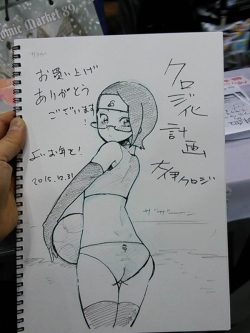 Comic Market 89
お買い上げ
ありがとう
ございます!
よいお年を!
2015.12.31
クロジ化
計画
大伊クロジ